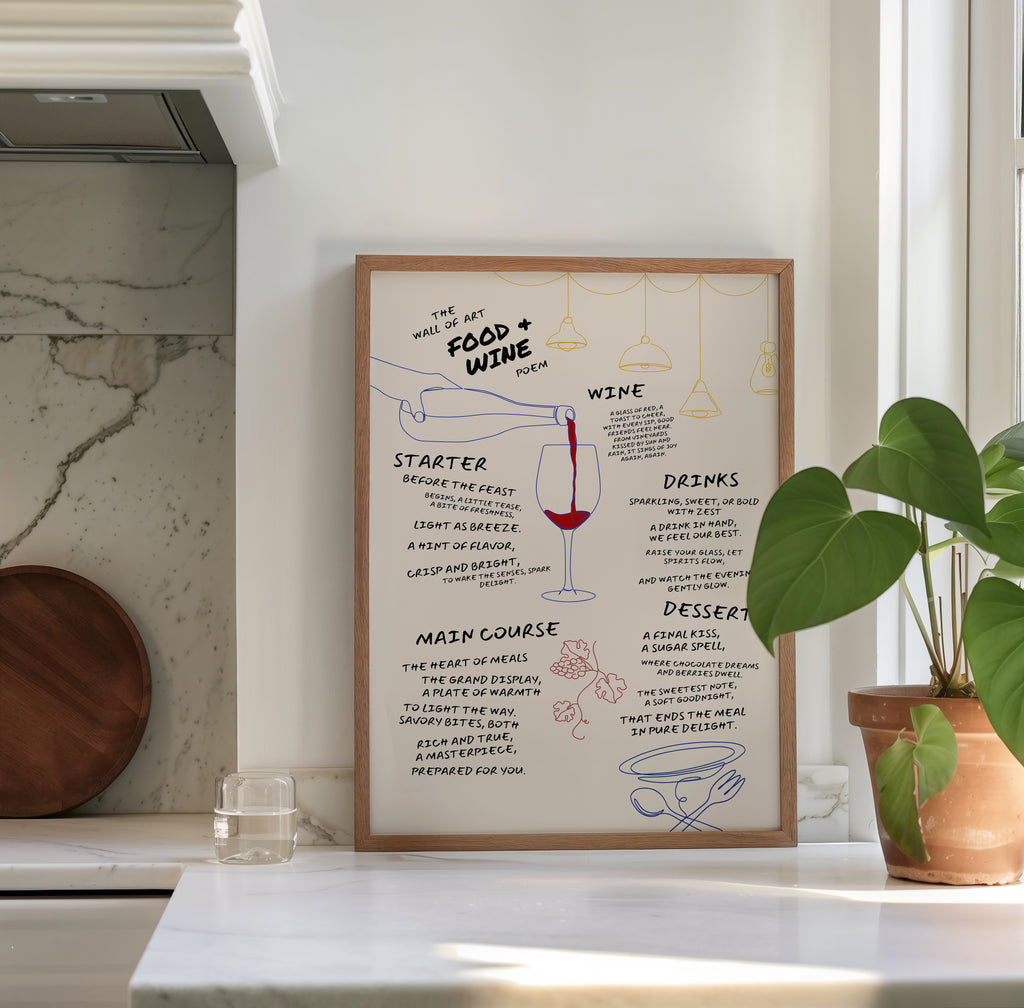 THE
WALL OF ART
FOOD +
WINE
POEM
WINE
A GLASS OF RED, A
TOAST TO CHEER,
WITH EVERY SIP, GOOD
FRIENDS FEEL NEAR.
FROM VINEYARDS
KISSED BY SUN AND
RAIN, IT SINGS OF JOY
AGAIN, AGAIN.
STARTER
BEFORE THE FEAST
BEGINS, A LITTLE TEASE,
A BITE OF FRESHNESS,
LIGHT AS BREEZE.
A HINT OF FLAVOR,
CRISP AND BRIGHT,
TO WAKE THE SENSES, SPARK
DELIGHT.
DRINKS
SPARKLING, SWEET, OR BOLD
WITH ZEST
A DRINK IN HAND,
WE FEEL OUR BEST.
RAISE YOUR GLASS, LET
SPIRITS FLOW,
AND WATCH THE EVENIN
GENTLY GLOW.
MAIN COURSE
THE HEART OF MEALS
THE GRAND DISPLAY,
A PLATE OF WARMTH
TO LIGHT THE WAY.
SAVORY BITES, BOTH
RICH AND TRUE,
A MASTERPIECE,
PREPARED FOR YOU.
DESSERT
A FINAL KISS,
A SUGAR SPELL,
WHERE CHOCOLATE DREAMS
AND BERRIES DWELL.
THE SWEETEST NOTE,
A SOFT GOODNIGHT,
THAT ENDS THE MEAL
IN PURE DELIGHT.